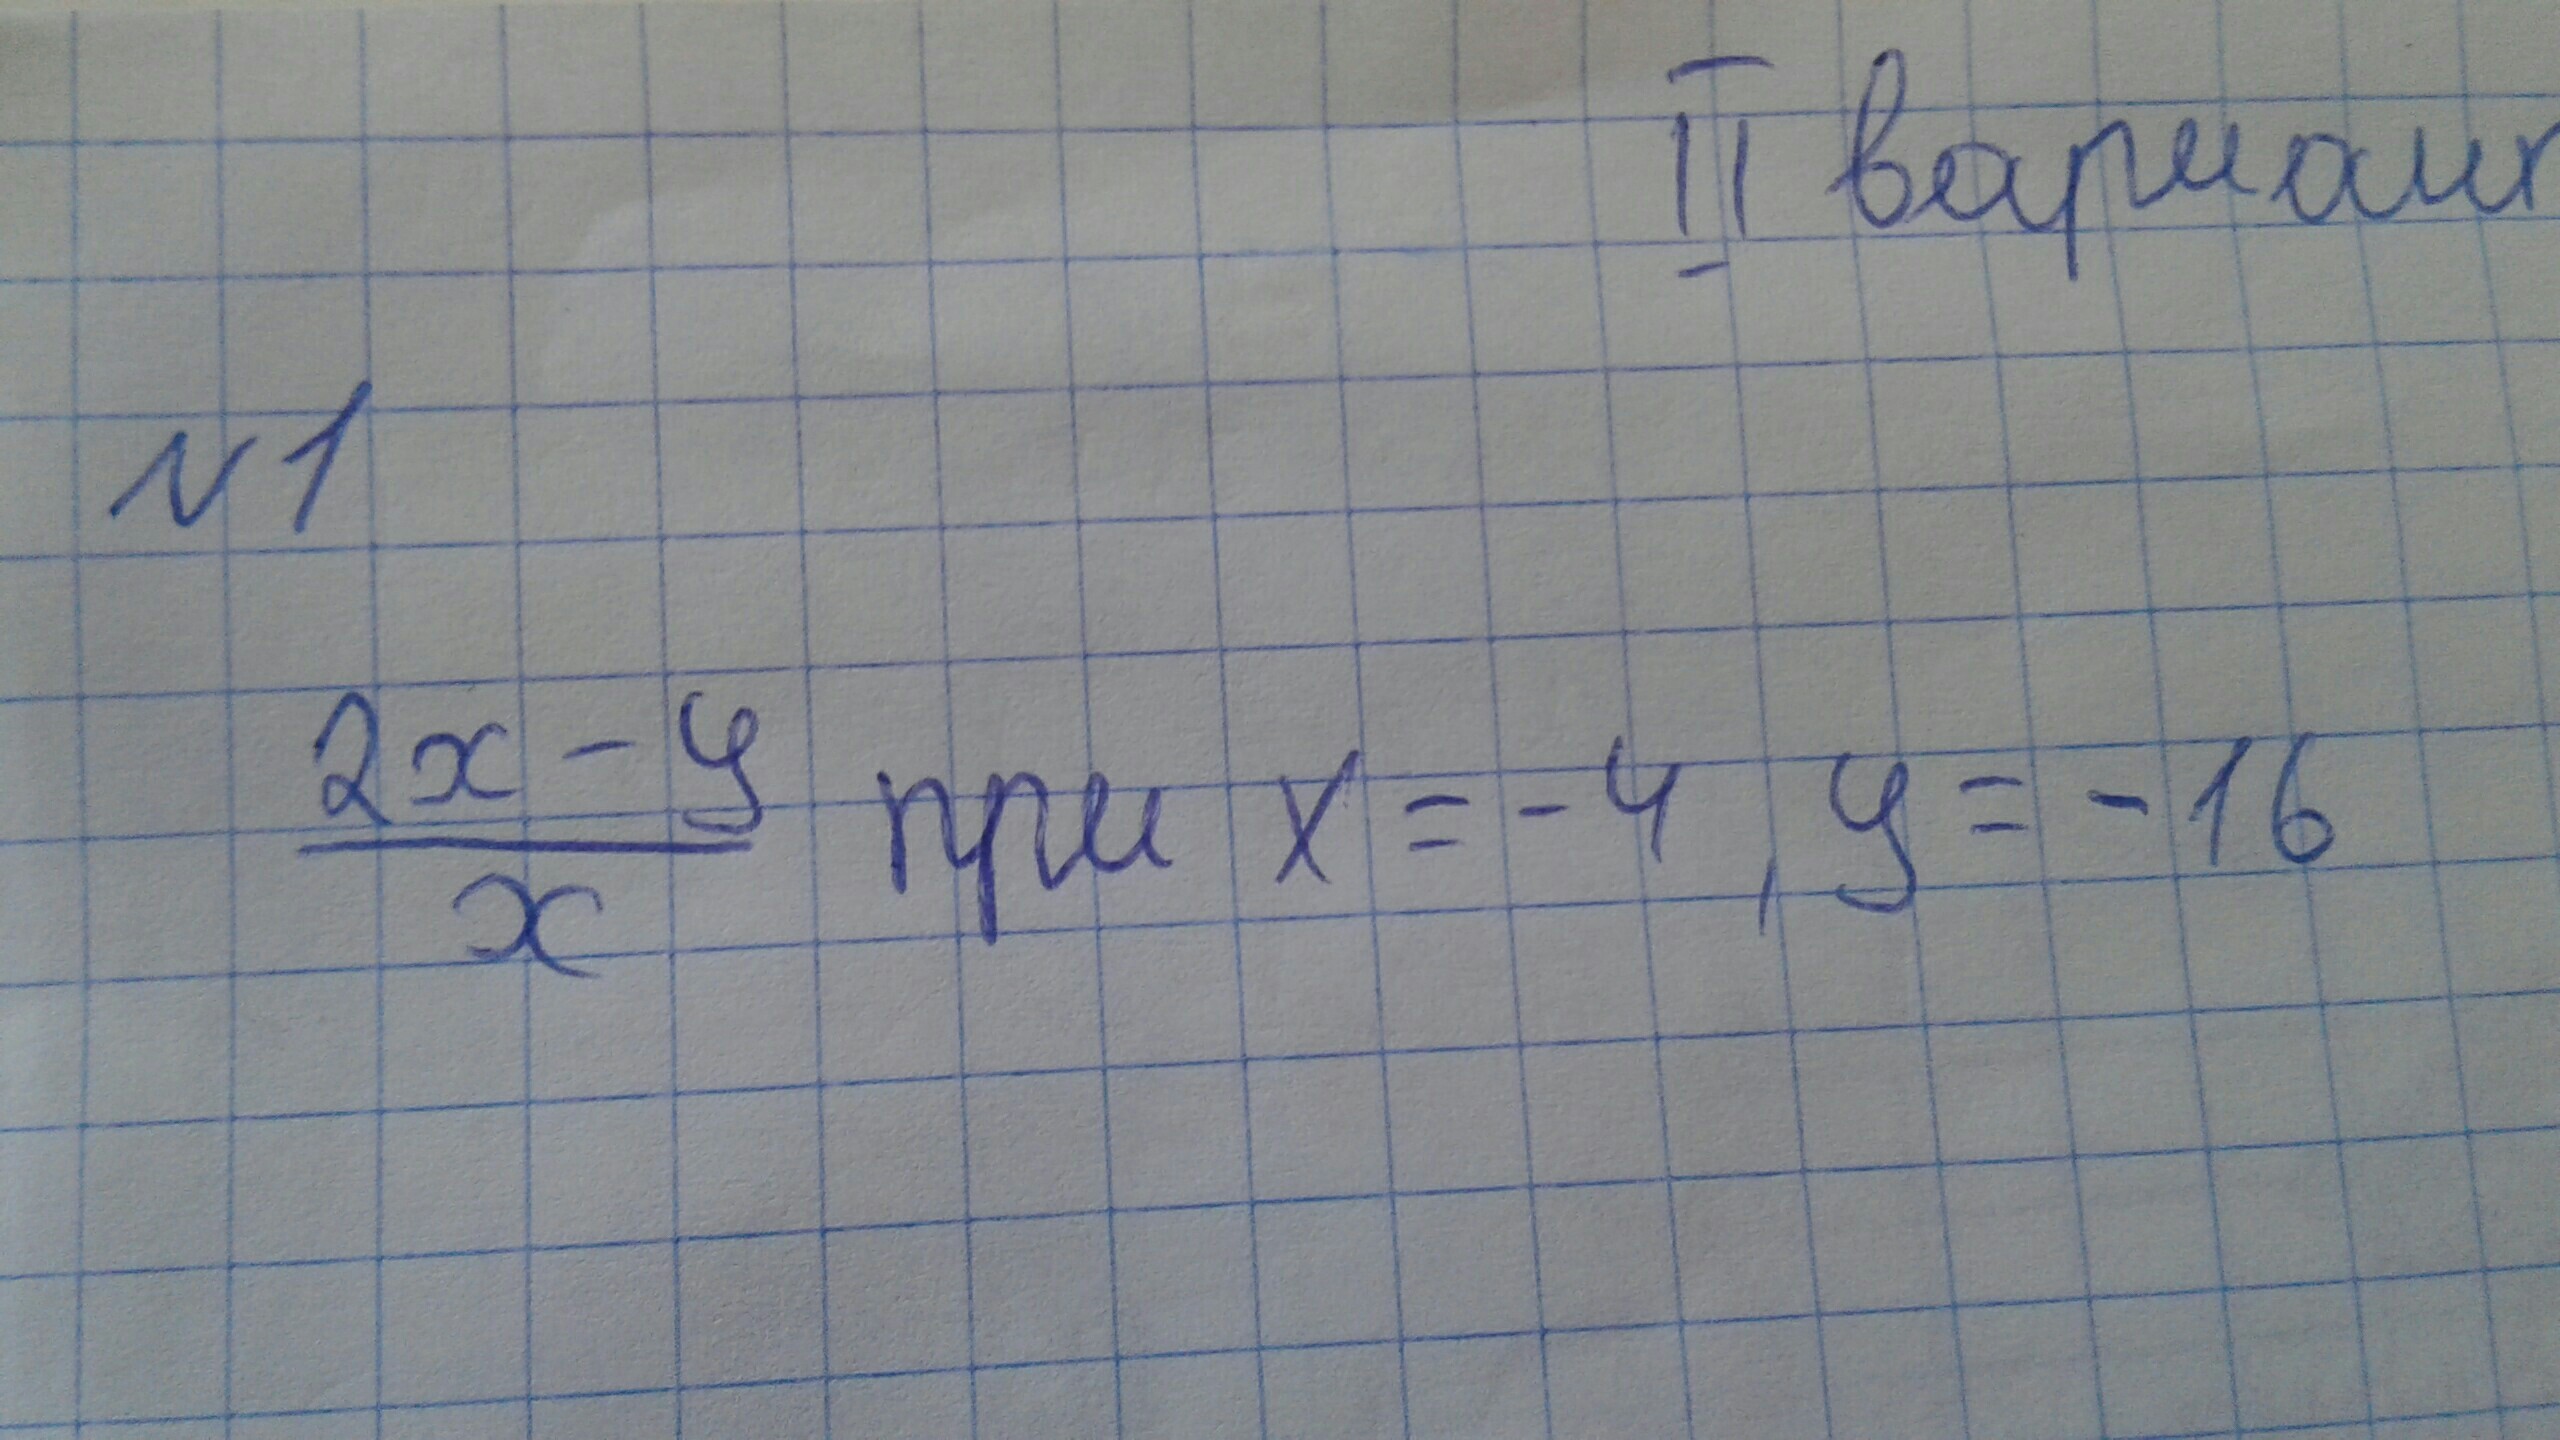 II вариант
N1
2x - y
x
при x = -4, y = -16